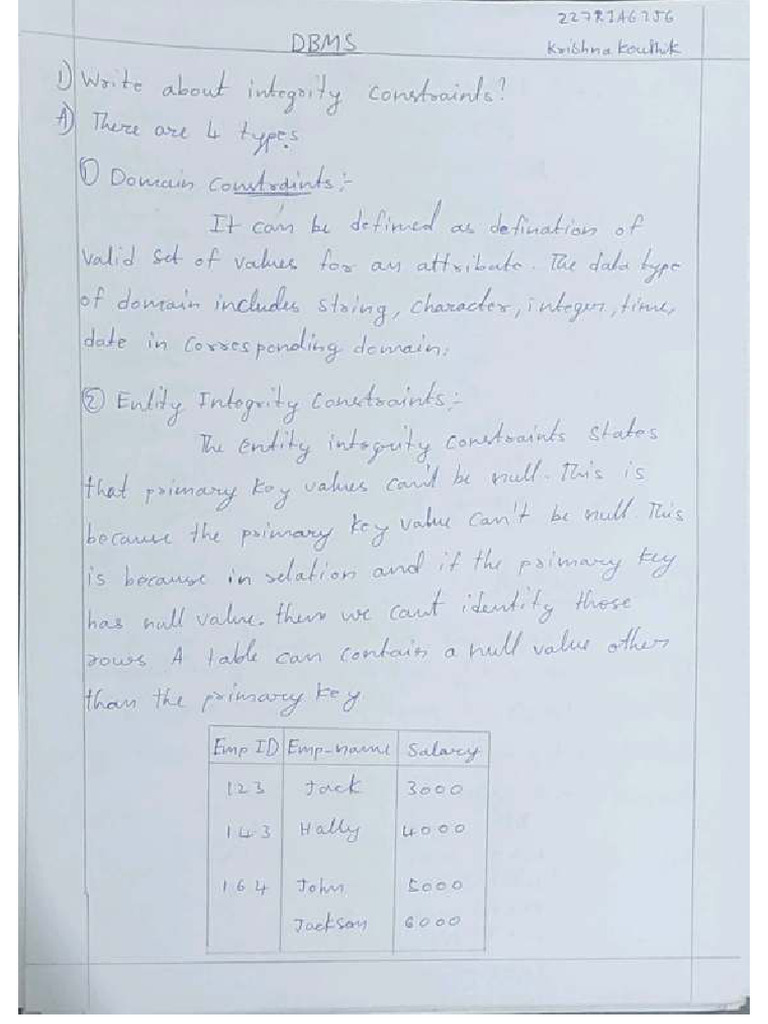 DBMS
Krishna Kouthk
1) Write about integrity constraints?
A) There are 4 types
① Domain Constraints :-
It can be defined as defination of
valid set of values for an attribute. The data type
of domain includes string, character, integer, time,
date in corresponding domain.
② Entity Integrity Constraints :-
The entity integrity constraints states
that primary key values can't be null. This is
because the primary key value can't be null. This
is because in relation and if the primary key
has null value. then we cant identity those
rows A table can contain a null value other
than the primary key
Emp ID Emp-name Salary
123 Jack 3000
143 Hally 4000
164 John 5000
Jackson 6000